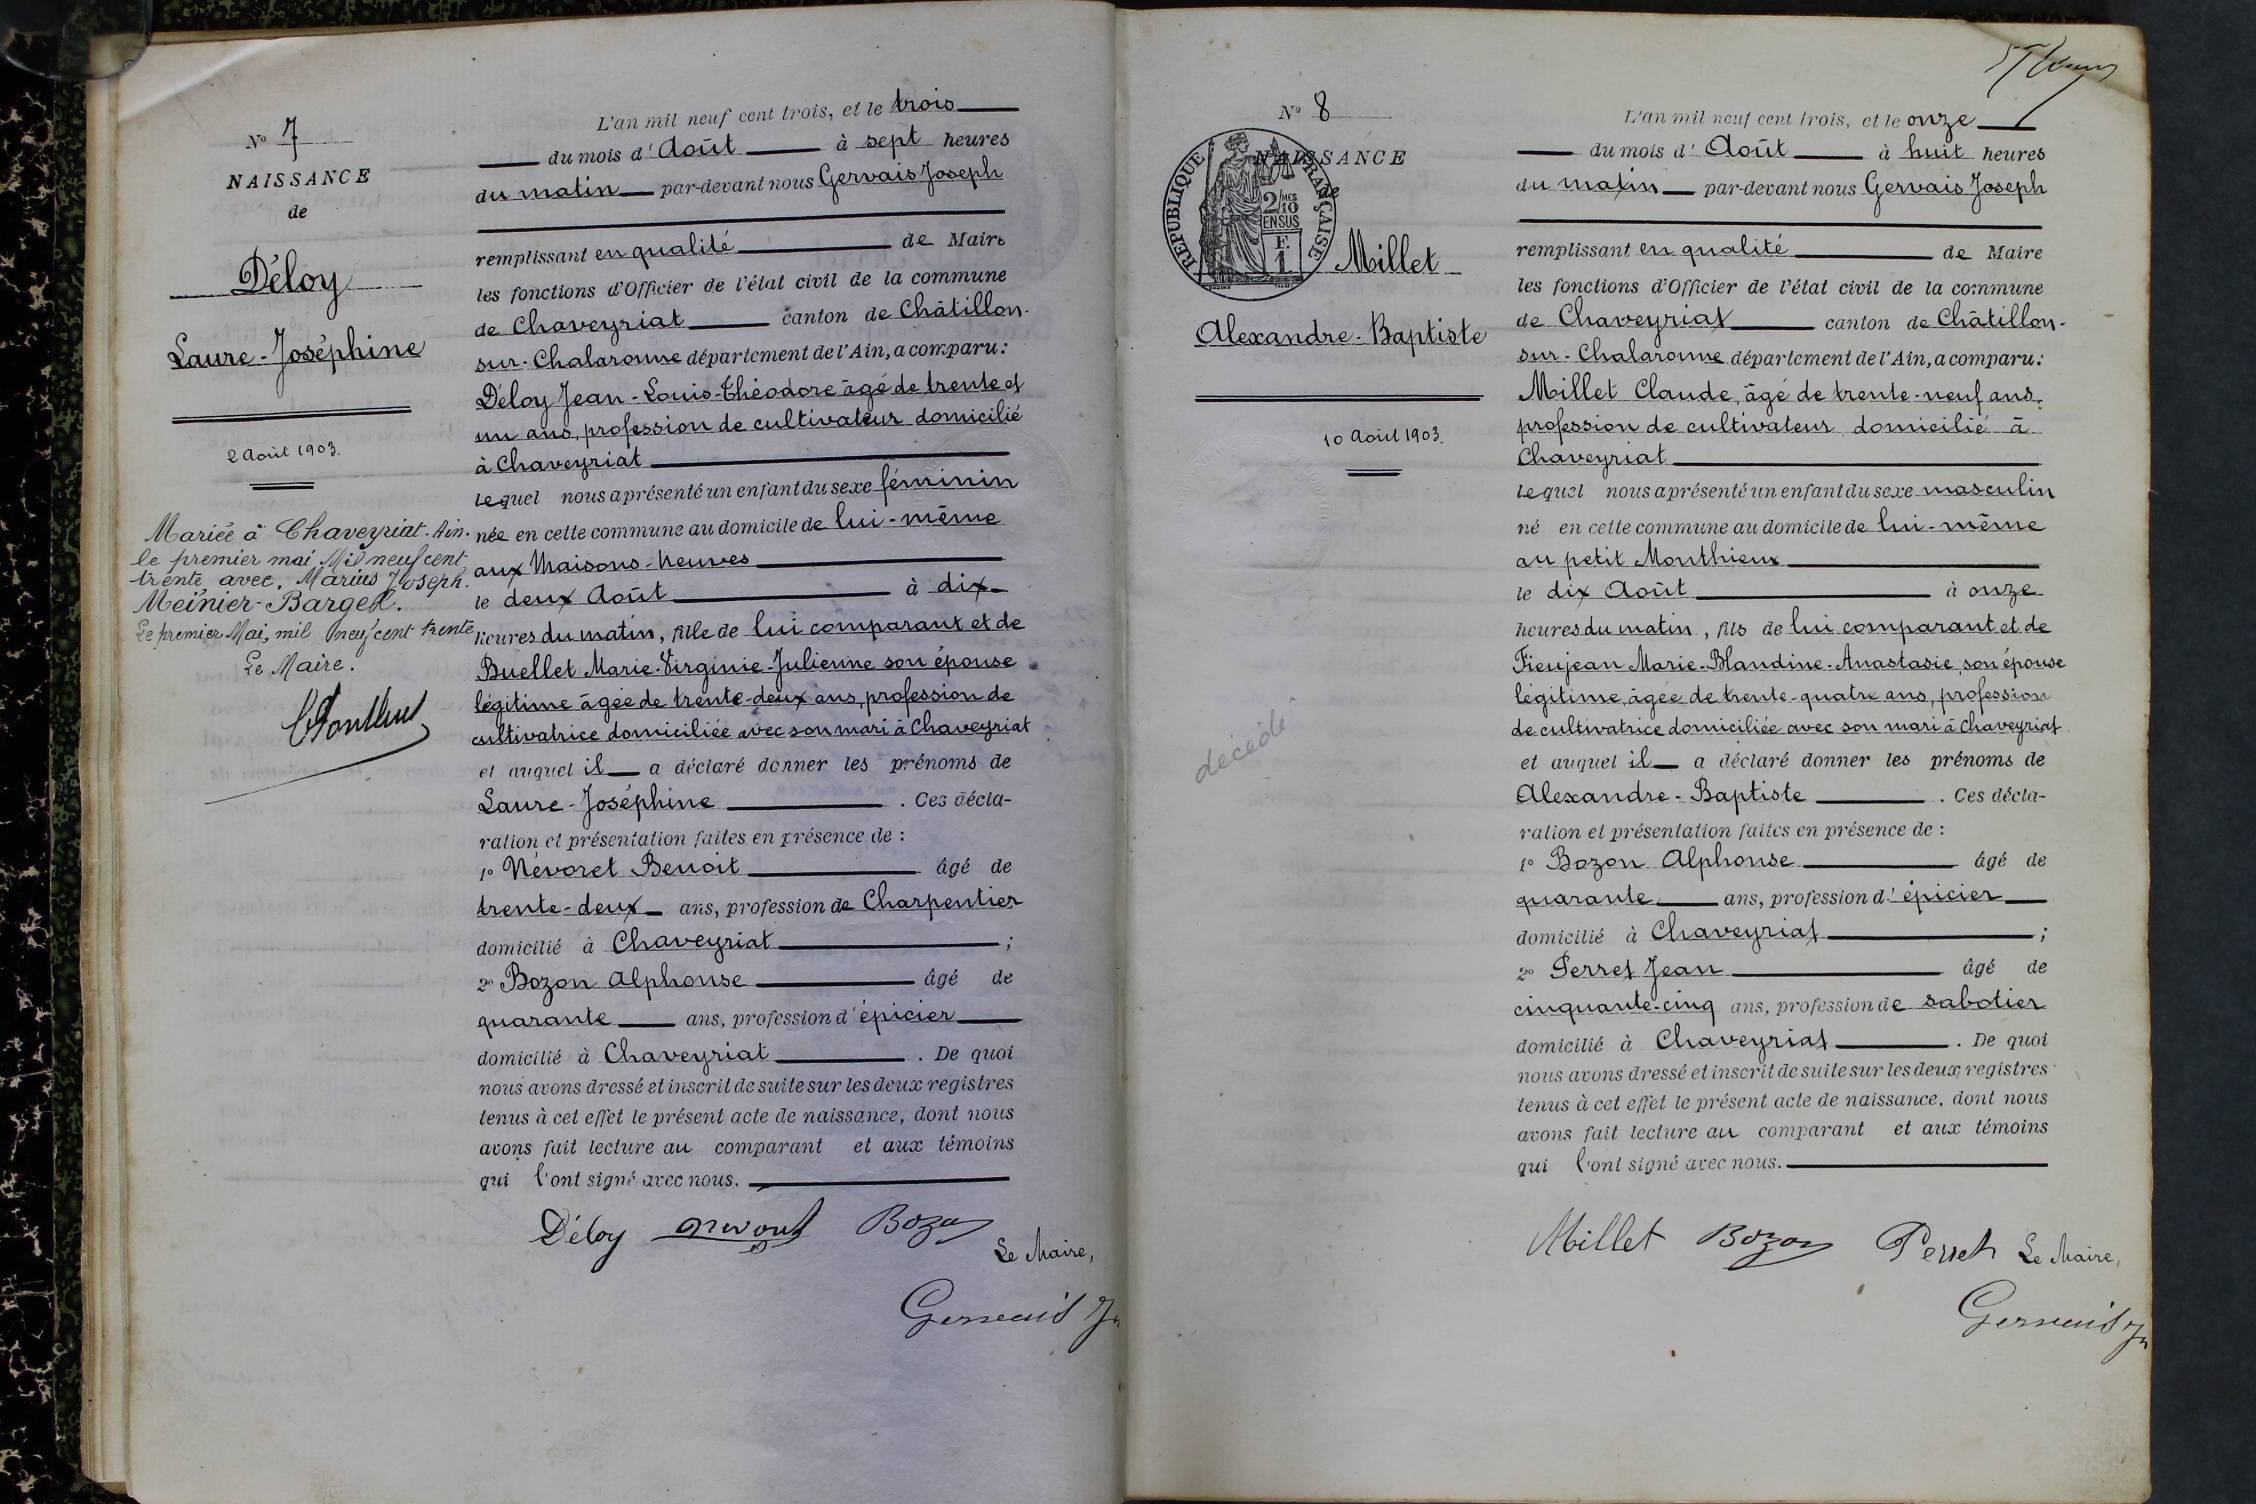 N° 7
NAISSANCE
de
Déloy
Laure-Joséphine
2 Août 1903.
Mariée à Chaveyriat. Ain.
le premier mai Mil neuf cent
trente avec. Marius Joseph.
Meinier-Barget.
Le premier Mai, mil neuf cent trente
Le Maire.
L'an mil neuf cent trois, et le trois
du mois d'Août à sept heures
du matin par-devant nous Gervais Joseph
remplissant en qualité de Maire
les fonctions d'Officier de l'état civil de la commune
de Chaveyriat canton de Châtillon-
sur-Chalaronne département de l'Ain, a comparu:
Déloy Jean-Louis-Théodore âgé de trente et
un ans, profession de cultivateur domicilié
à Chaveyriat
lequel nous a présenté un enfant du sexe féminin
née en cette commune au domicile de lui-même
aux Maisons-neuves
le deux Août à dix
heures du matin, fille de lui comparant et de
Buellet Marie-Virginie-Julienne son épouse
légitime âgée de trente-deux ans, profession de
cultivatrice domiciliée avec son mari à Chaveyriat
et auquel il a déclaré donner les prénoms de
Laure-Joséphine . Ces décla-
ration et présentation faites en présence de :
1° Névoret Benoit âgé de
trente-deux ans, profession de Charpentier
domicilié à Chaveyriat ;
2° Bozon Alphonse âgé de
quarante ans, profession d'épicier
domicilié à Chaveyriat . De quoi
nous avons dressé et inscrit de suite sur les deux registres
tenus à cet effet le présent acte de naissance, dont nous
avons fait lecture au comparant et aux témoins
qui l'ont signé avec nous.
Déloy Bozon
Le Maire,
Gervais Jh
N° 8
NAISSANCE
de
RÉPUBLIQUE FRANÇAISE
2/10 MES
EN SUS
F.
1
Millet
Alexandre-Baptiste
10 Août 1903.
décédé
L'an mil neuf cent trois, et le onze
du mois d'Août à huit heures
du matin par-devant nous Gervais Joseph
remplissant en qualité de Maire
les fonctions d'Officier de l'état civil de la commune
de Chaveyriat canton de Châtillon-
sur-Chalaronne département de l'Ain, a comparu:
Millet Claude, âgé de trente-neuf ans,
profession de cultivateur domicilié à
Chaveyriat
lequel nous a présenté un enfant du sexe masculin
né en cette commune au domicile de lui-même
au petit Monthieux
le dix Août à onze
heures du matin, fils de lui comparant et de
Fieujean Marie-Blandine-Anastasie, son épouse
légitime, âgée de trente-quatre ans, profession
de cultivatrice domiciliée avec son mari à Chaveyriat
et auquel il a déclaré donner les prénoms de
Alexandre-Baptiste . Ces décla-
ration et présentation faites en présence de :
1° Bozon Alphonse âgé de
quarante ans, profession d'épicier
domicilié à Chaveyriat ;
2° Perret Jean âgé de
cinquante-cinq ans, profession de sabotier
domicilié à Chaveyriat . De quoi
nous avons dressé et inscrit de suite sur les deux registres
tenus à cet effet le présent acte de naissance, dont nous
avons fait lecture au comparant et aux témoins
qui l'ont signé avec nous.
Millet Bozon Perret Le Maire,
Gervais Jh